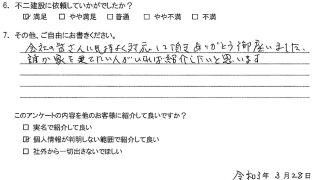 6. 不二建設に依頼していかがでしたか？
☑ 満足 □ やや満足 □ 普通 □ やや不満 □ 不満
7. その他、ご自由にお書きください。
会社の皆さんに気持よく対応して頂きありがとう御座いました、
誰か家を建てたい人がいれば紹介したいと思います
このアンケートの内容を他のお客様に紹介して良いですか？
□ 実名で紹介して良い
☑ 個人情報が判明しない範囲で紹介して良い
□ 社外から一切出さないでほしい
令和3年 3月28日